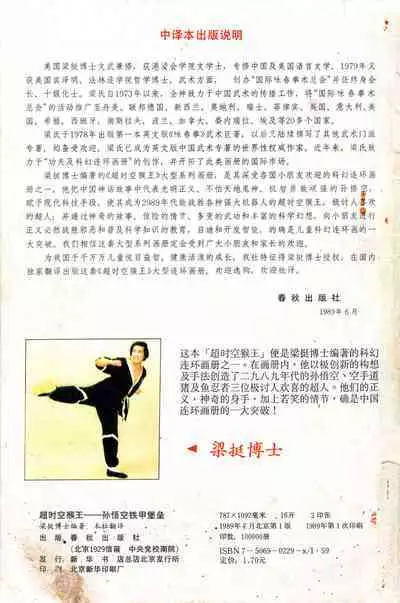 中译本出版说明
美国梁挺博士文武兼修，获港浸会学院文学士，专修中国及英国语言文学，1979年又
获美国宾泽明、法林达学院哲学博士。武术方面，创办“国际咏春拳术总会”并任终身会
长、十级化士。梁氏自1973年以来，全神致力于中国武术的传播工作，将“国际咏春拳术
总会”的活动推广至丹麦、联邦德国、新西兰、奥地利、瑞士、菲律宾、英国、意大利、美
国、希腊、西班牙、南斯拉夫、波兰、加拿大、委内瑞拉、埃及等20多个国家。
梁氏于1978年出版第一本英文版《咏春拳》武术巨著，以后又陆续撰写了其他武术门派
专著，均备受欢迎。梁氏已成为英文版中国武术专著的世界性权威作家。近年来，梁氏致
力于“功夫及科幻连环画册”的创作，并开拓了此类画册的国际市场。
梁挺博士编著的《超时空猴王》大型系列画册，是其深受各国小朋友欢迎的科幻连环画
册之一。他把中国神话故事中代表光明正义、不怕天地鬼神、机智勇敢顽强的孙悟空，
赋予现代科技手段，使其成为2989年代能战胜各种强大机器人的超时空猴王，极讨人喜欢
的超人；并通过神奇的故事、惊险的情节、多变的武功和丰富的科学幻想，向小朋友进行
正义必然战胜邪恶和普及科学知识的教育，启迪和开发智能，的确是儿童科幻连环画的一
大突破。我们相信这套大型系列画册定会受到广大小朋友和家长的欢迎。
为我国千千万万儿童悦目益智，健康活泼的成长，我社特征得梁挺博士授权，在国内
独家翻译出版这套《超时空猴王》大型连环画册。欢迎选购，欢迎批评。
春秋出版社
1989年6月
这本「超时空猴王」便是梁挺博士编著的科幻
连环画册之一。在画册内，他以极创新的构想
及手法创造了二九八九年代的孙悟空、空手道
猪及鱼忍者三位极讨人欢喜的超人。他们的正
义，神奇的身手，加上若笑的情节，确是中国
连环画册的一大突破！
梁挺博士
超时空猴王——孙悟空铁甲堡垒
梁挺博士编著 本社翻译
出版 春秋出版社
（北京1929信箱 中央党校南院）
发行：新华书店总店北京发行所
印刷 北京新华印刷厂
787×1092毫米 16开 2印张
1989年6月北京第1版 1989年第1次印刷
印数：100000册
ISBN7－5069－0229－x/I·59
定价：1.70元